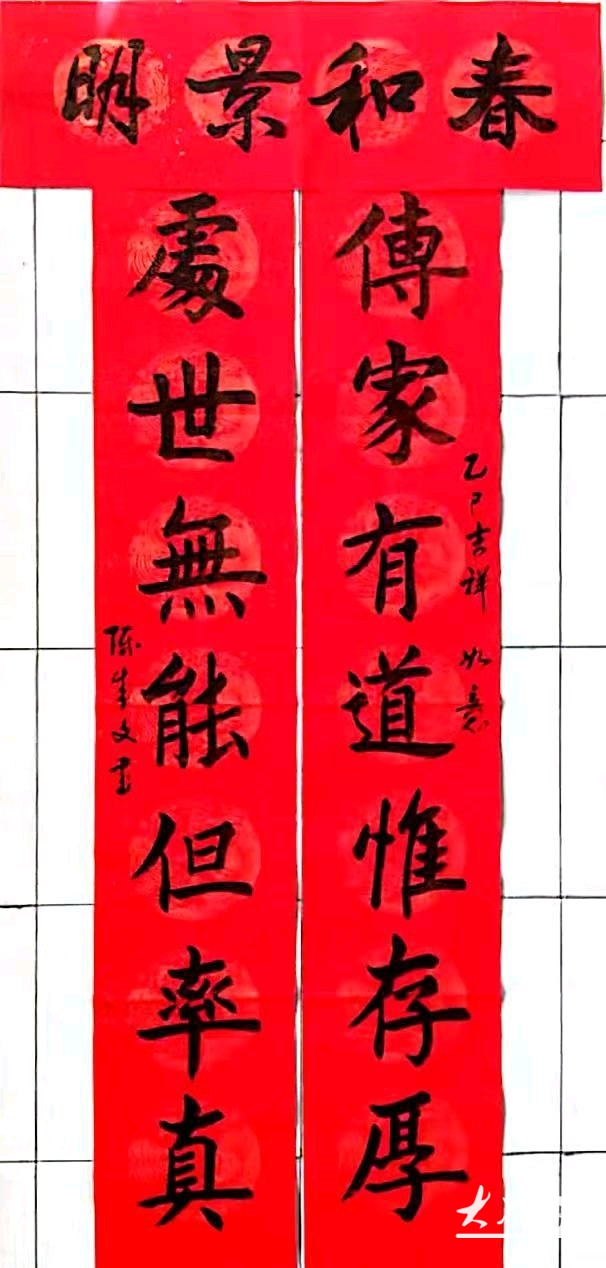 春和景明
傳家有道惟存厚
乙巳吉祥如意
處世無能但率真
陈生文書
大